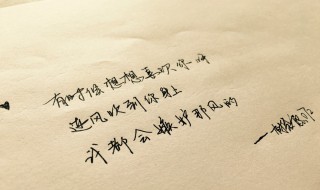 有时候想想喜欢你呀
连风吹到你身上
我都会嫉妒那风的